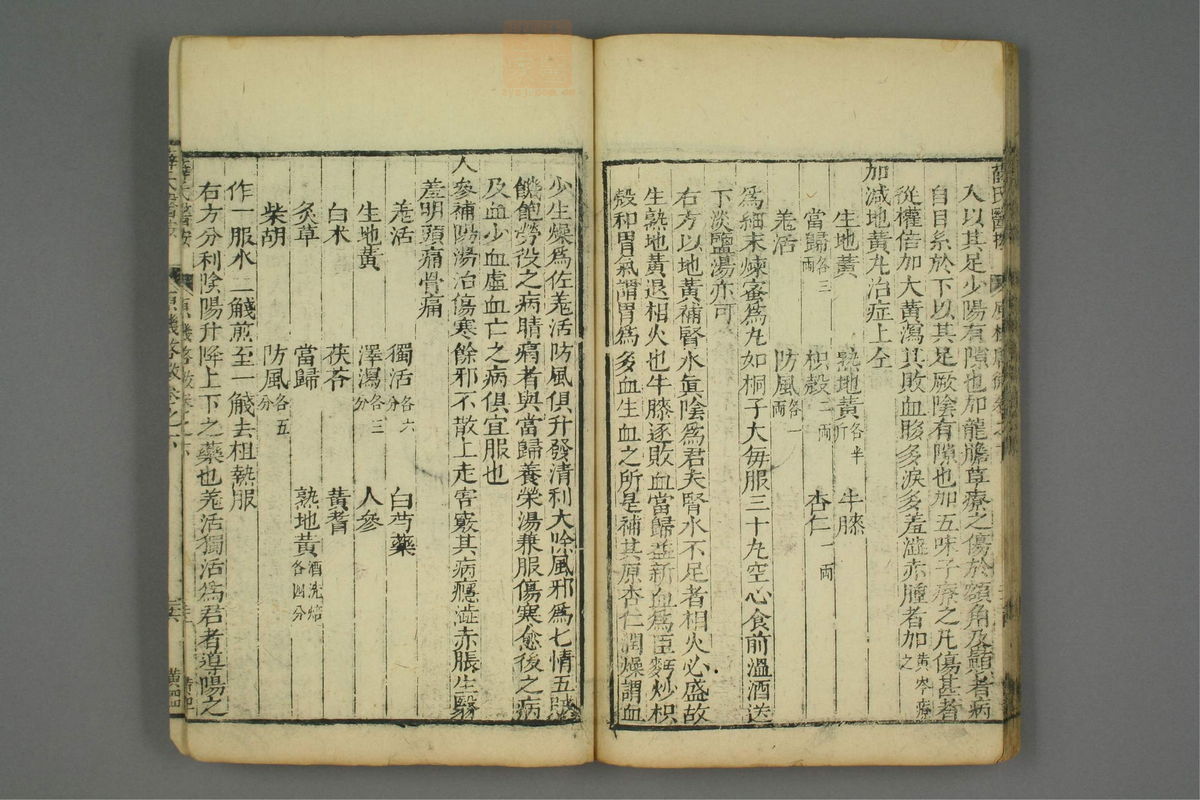 人以其足少陽有隙也加龍膽草療之傷於額角及顚者病
自目系於下以其足厥陰有隙也加五味子療之凡傷甚者
從權倍加大黃瀉其敗血眵多淚多羞澁赤腫者加黃岑療之
加減地黃丸治症上仝
生地黃 熟地黃各半斤 牛膝
當歸各三兩 枳殼二兩 杏仁一兩
羗活 防風各一兩
爲細末煉蜜爲丸如桐子大每服三十丸空心食前溫酒送
下淡鹽湯亦可
右方以地黃補腎水眞陰爲君夫腎水不足者相火必盛故
生熟地黃退相火也牛膝逐敗血當歸益新血爲臣麩炒枳
殼和胃氣謂胃爲多血生血之所是補其原杏仁潤燥謂血
少生燥爲佐羗活防風俱升發清利大除風邪爲七情五賊
饑飽勞役之病睛痛者與當歸養榮湯兼服傷寒愈後之病
及血少血虛血亡之病俱宜服也
人參補陽湯治傷寒餘邪不散上走空竅其病癮澁赤脹生翳
羞明頭痛骨痛
羗活 獨活各六分 白芍藥
生地黃 澤瀉各三分 人參
白术 茯苓 黃耆
炙草 當歸 熟地黃酒洗焙各四分
柴胡 防風各五分
作一服水二觥煎至一觥去柤熱服
右方分利陰陽升降上下之藥也羗活獨活爲君者導陽之